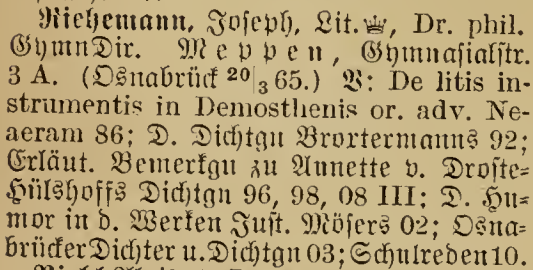 Riehemann, Joseph, Lit.♕, Dr. phil.
GymnDir. Meppen, Gymnasialstr.
3 A. (Osnabrück 20/3 65.) V: De litis in-
strumentis in Demosthenis or. adv. Ne-
aeram 86; D. Dichtgn Brortermanns 92;
Erläut. Bemerkgn zu Annette v. Droste-
Hülshoffs Dichtgn 96, 98, 08 III; D. Hu-
mor in d. Werken Just. Mösers 02; Osna-
brücker Dichter u. Dichtgn 03; Schulreden 10.